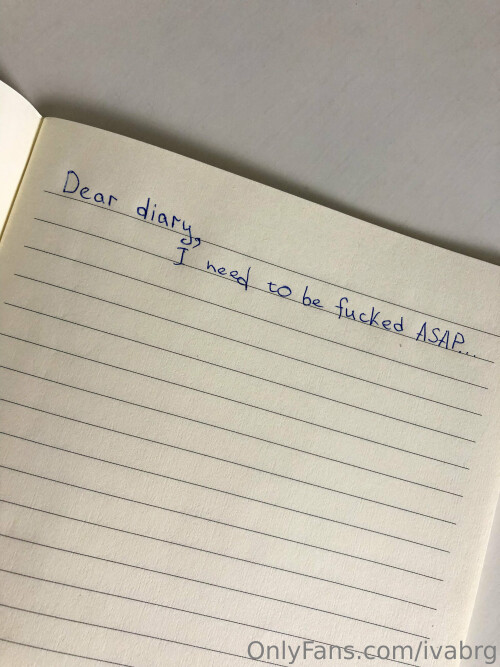 Dear diary,
I need to be fucked ASAP...
OnlyFans.com/ivabrg